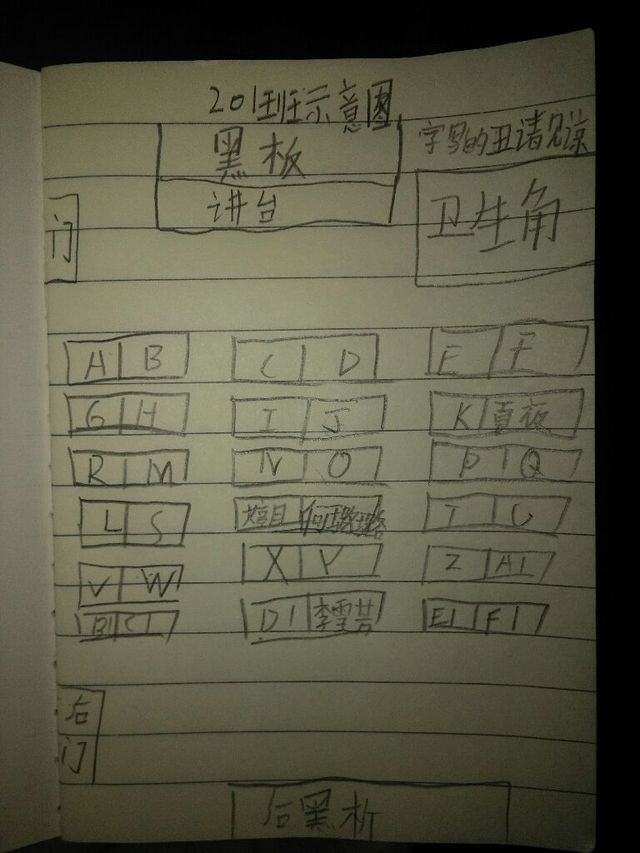 201班示意图
字写的丑请见谅
黑板
讲台
卫生角
门
A B C D E F
G H I J K 夏夜
R M N O P Q
L S 何璐璐 T U
V W X Y Z A1
B1 C1 D1 李雪芸 E1 F1
后门
后黑板